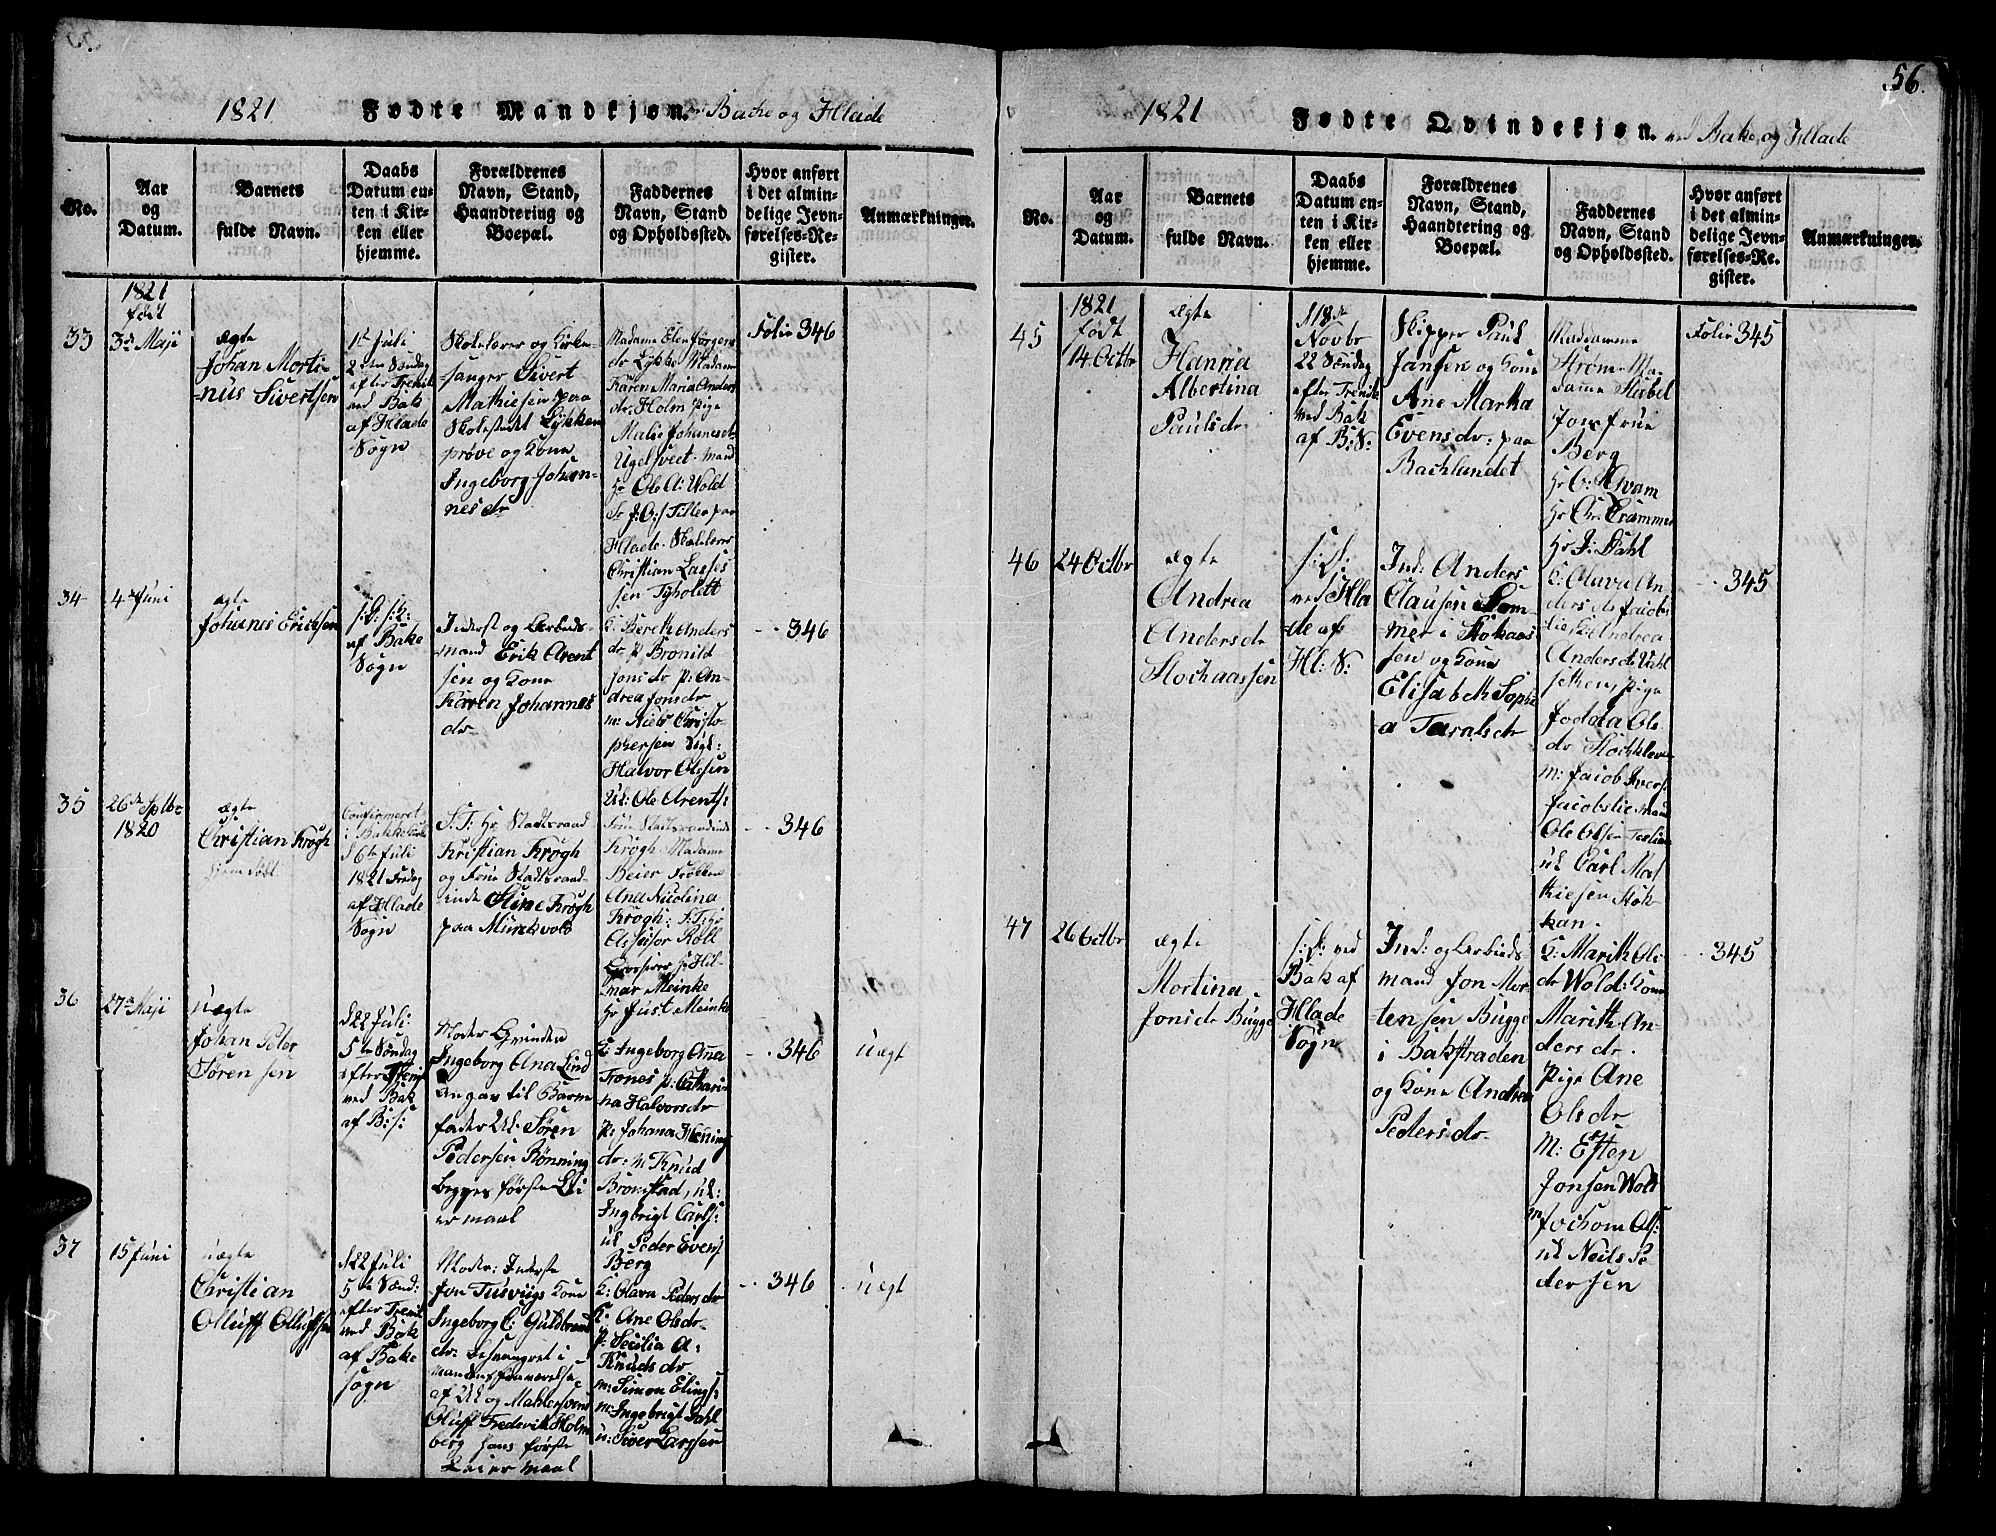 56.
1821 Fødte Mandkjøn. Bake og Hlade
No.
Aar
og
Datum.
Barnets
fulde Navn.
Daabs
Datum en-
ten i Kir-
ken eller
hjemme.
Forældrenes
Navn, Stand,
Haandtering og
Boepæl.
Faddernes
Navn, Stand
og Opholdssted.
Hvor anført
i det almin-
delige Jevn-
førelses-Re-
gister.
Anmærkninger.
1821
født
33
3de Maji
ægte
Johan Morti-
nus Sivertsen
1ste Juli
2den Søndag
efter Trenit
ved Bak
af Hlade
Sogn
Skolelærer og Kirke-
sanger Sivert
Mathiesen paa
Skolestædet Lykkens
prøve og Kone
Ingeborg Johan-
nesdr
Madame Elen Jørgens
dr Lykke Madam
Karen Maria Anders
dr Holm Pige
Malie Johanesdr
Ugelsveet mand
Hr Ole A: Wold
Tiller paa
Hlade Skolelærer
Christian Lasses
sen Tyholett
Folie 346
34
4de Juni
ægte
Johanes Ericksen
af Bake
Sogn
Inderst og Arbeids-
mand Erik Arent
sen og Kone
Karen Johannes
dr
K: Bereth Anders
dr P: Bronild
Jonsdr P: An-
drea Jonsdr
m: Niels Christo-
phersen
Halvor Olesen
Uk: Ole Arents:
346
35
26de Sptbr
1820
ægte
Christian Krøgh
hjemdøbt
Confirmeret
i Bakke Kirke
d 6te Juli
1821 Fredag
af Hlade
Sogn
S: T: Hr Stadtsraad
Kristian Krøgh
og Frue Stadtsraad-
inde Stine Krøgh
paa Munkvold
Frue Stadtsraadinde
Krøgh Madame
Beier Frøken
Ana Nicolina
Krøgh: S: T: Hr
Assesor Roll
Hr Hil-
mar Meinke
Hr Just Meinke
346
36
27de Maji
uægte
Johan Peter
Sørensen
d 22 Juli
5te Søndag
efter Trenit
ved Bak
af B: S:
Moder Qvinden
Ingeborg Ana Lind
angav til Barne
fader Uk: Søren
Pedersen Rønning
begges første Lei
ermaal
K: Ingeborg Anna
Trones P: Cathari-
na Halvorsdr
P: Johana Hening
dr: m Knud
Bromstad, uk:
Ingbrigt Carls:
uk Peder Evens
Berg
346
uægt
37
15 Juni
uægte
Christian
Olluff Olluffsen
d 22 Juli
5te Sønd:
efter Trenit
ved Bak
af Bake
sogn
Moder: Inderste
Jon Tusvigs Kone
Ingeborg C: Guldbrand
dr: besvangret i
Mandens fraværelse
af Uk og Malersvend
Oluff Frederik Holm
berg hans første
Leiermaal
K: Olava Pedersdr
K. Ane Olsdr
P: Secilia A:
Knudsdr
m: Simon Elings:
m: Ingebrigt Dahl
u: Siver Larssen
346
uægt
1821 Fødte Qvindekjøn. ved Bake og Hlade
No.
Aar
og
Datum.
Barnets
fulde Navn.
Daabs
Datum en-
ten i Kir-
ken eller
hjemme.
Forældrenes
Navn, Stand,
Haandtering og
Boepæl.
Faddernes
Navn, Stand
og Opholdssted.
Hvor anført
i det almin-
delige Jevn-
førelses-Re-
gister.
Anmærkninger.
1821
født
45
14 Octbr
ægte
Hanna
Albertina
Paulsdr
d 18de
Novbr
22 Søndag
efter Trenit
ved Bak
af B: S:
Skipper Paul
Jansen og Kone
Ane Martha
Evensdr: paa
Bachlundet
Madamme
Strøm Ma-
damme Stibel
Jomfrue
Berg
Hr C: Hvam
Hr Chr. Crammer
Hr J: Dahl
Folie 345
46
24 Octbr
ægte
Andrea
Andersdr
Stochaassen
ved Hla
de af
Hl: S:
Ind: Anders
Clausen Døm-
mer i Stokaas
sen og Kone
Elisabeth Sophi
a Taralsdr
K: Olava An-
dersdr Jacobs
lie K: Andrea
Andersdr
Pige
Joddda Ols-
dr Stochkleven
m: Jacob Ivers:
Jacobslie mand
Ole Olsen
uk Carl Mat
thiesen Stok-
kan.
345
47
26 Octbr
ægte
Mortina
Jonsdr Bugge
ved
Bak af
Hlade
Sogn
Ind: og Arbeids-
mand Jon Mor-
tensen Bugge
i Bakstraden
og Kone Andrea
Pedersdr.
K: Marith Ols
dr Wold: Kone
Marith An-
dersdr.
Pige Ane
Olsdr
M: Esten
Jonsen Wold
m Jochom Ols:
uk Neils Pe
dersen
345